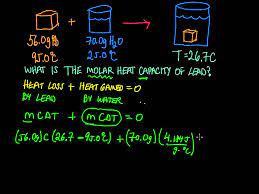 +
56.0g Pb 70.0g H₂O
95.0°C 25.0°C T=26.7C
WHAT IS THE MOLAR HEAT CAPACITY OF LEAD?
HEAT LOSS + HEAT GAINED = 0
BY LEAD BY WATER
mCΔT + mCΔT = 0
(56.0g)C(26.7-95.0°C)+(70.0g)(4.184J/g·°C)